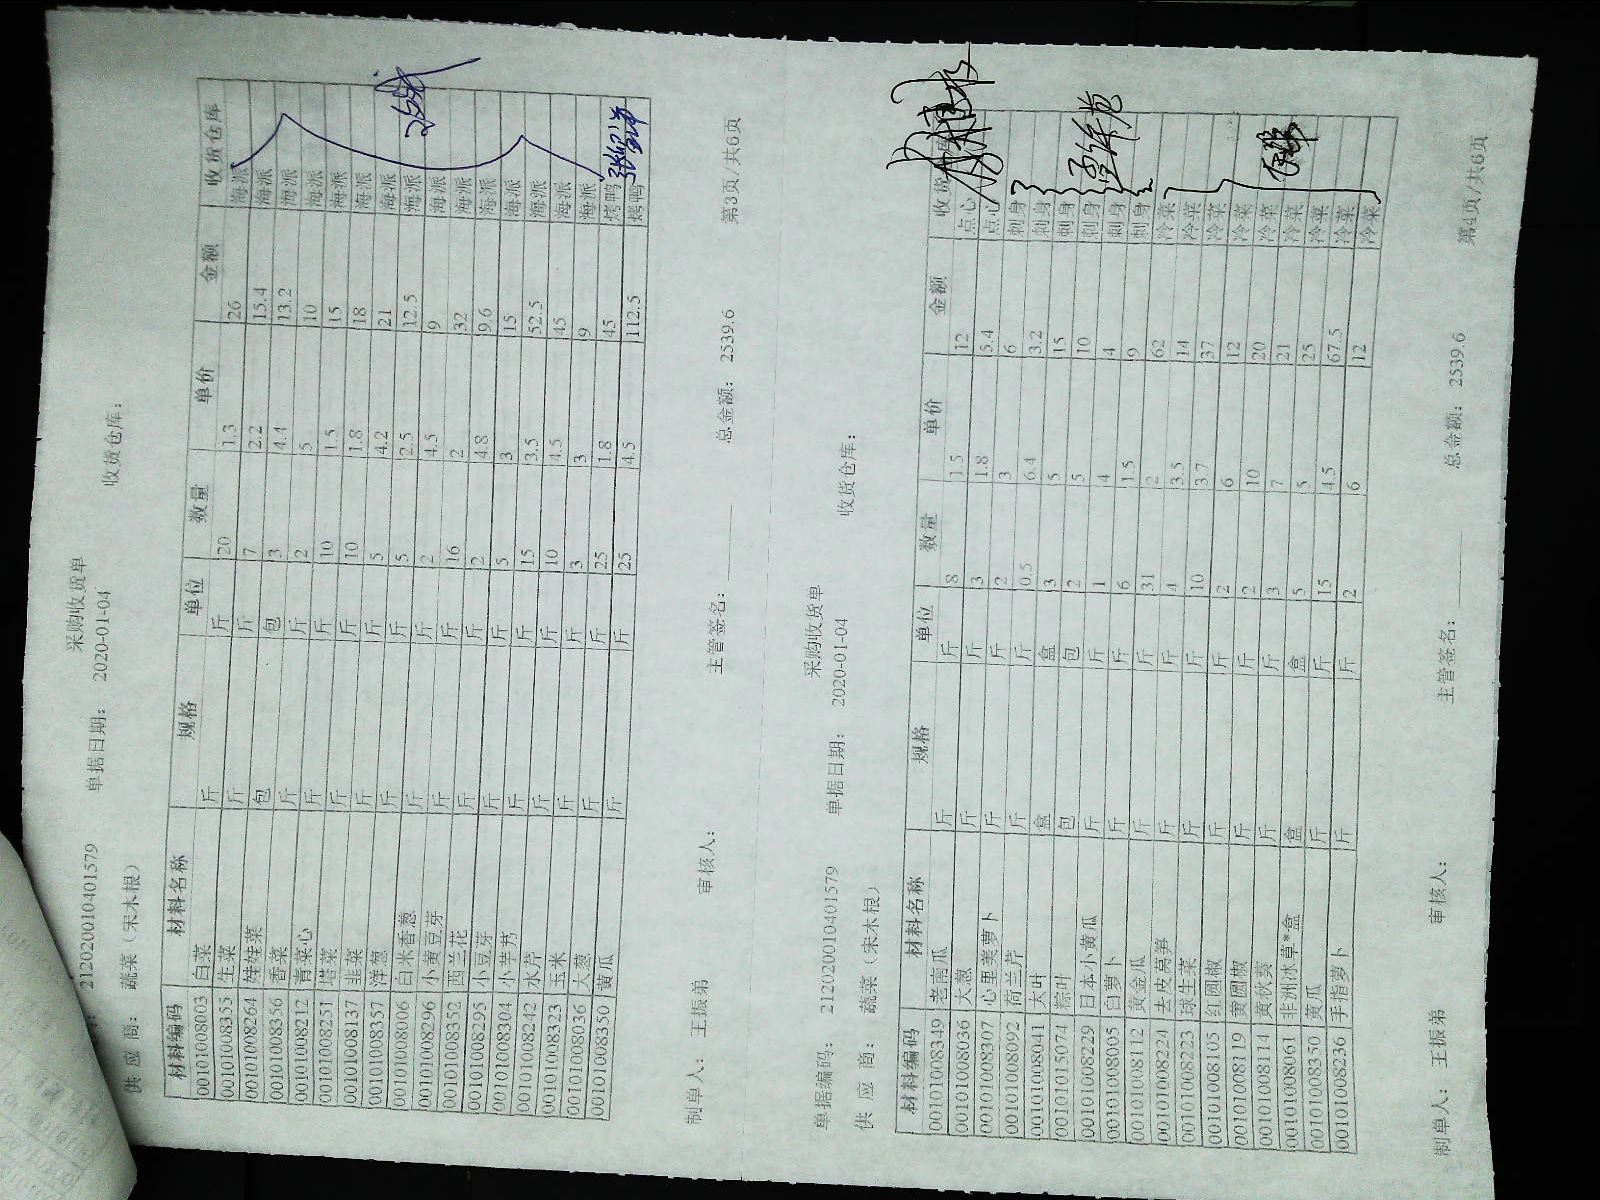 采购收货单
212020010401579 单据日期: 2020-01-04 收货仓库:
供 应 商: 蔬菜(宋木根)
材料编码 材料名称 规格 单位 数量 单价 金额 收货仓库
00101008003 白菜 斤 斤 20 1.3 26 海派
00101008355 生菜 斤 斤 7 2.2 15.4 海派
00101008264 娃娃菜 包 包 3 4.4 13.2 海派
00101008356 香菜 斤 斤 2 5 10 海派
00101008212 青菜心 斤 斤 10 1.5 15 海派
00101008251 塔菜 斤 斤 10 1.8 18 海派
00101008137 韭菜 斤 斤 5 4.2 21 海派
00101008357 洋葱 斤 斤 5 2.5 12.5 海派
00101008006 白米香葱 斤 斤 2 4.5 9 海派
00101008296 小黄豆芽 斤 斤 16 2 32 海派
00101008352 西兰花 斤 斤 2 4.8 9.6 海派
00101008295 小豆芽 斤 斤 5 3 15 海派
00101008304 小芋艿 斤 斤 15 3.5 52.5 海派
00101008242 水芹 斤 斤 10 4.5 45 海派
00101008323 玉米 斤 斤 3 3 9 海派
00101008036 大葱 斤 斤 25 1.8 45 烤鸭
00101008350 黄瓜 斤 斤 25 4.5 112.5 烤鸭
制单人: 王振弟 审核人: 主管签名: 总金额: 2539.6 第3页/共6页
采购收货单
单据编码: 212020010401579 单据日期: 2020-01-04 收货仓库:
供 应 商: 蔬菜(宋木根)
材料编码 材料名称 规格 单位 数量 单价 金额 收货
00101008349 老南瓜 斤 斤 8 1.5 12 点心
00101008036 大葱 斤 斤 3 1.8 5.4 点心
00101008307 心里美萝卜 斤 斤 2 3 6 刺身
00101008092 荷兰芹 斤 斤 0.5 6.4 3.2 刺身
00101008041 大叶 盒 盒 3 5 15 刺身
00101015074 粽叶 包 包 2 5 10 刺身
00101008229 日本小黄瓜 斤 斤 1 4 4 刺身
00101008005 白萝卜 斤 斤 6 1.5 9 刺身
00101008112 黄金瓜 斤 斤 31 2 62 冷菜
00101008224 去皮莴笋 斤 斤 4 3.5 14 冷菜
00101008223 球生菜 斤 斤 10 3.7 37 冷菜
00101008105 红圆椒 斤 斤 2 6 12 冷菜
00101008119 黄圆椒 斤 斤 2 10 20 冷菜
00101008114 黄秋葵 斤 斤 3 7 21 冷菜
00101008061 非洲冰草*盒 盒 盒 5 5 25 冷菜
00101008350 黄瓜 斤 斤 15 4.5 67.5 冷菜
00101008236 手指萝卜 斤 斤 2 6 12 冷菜
制单人: 王振弟 审核人: 主管签名: 总金额: 2539.6 第4页/共6页